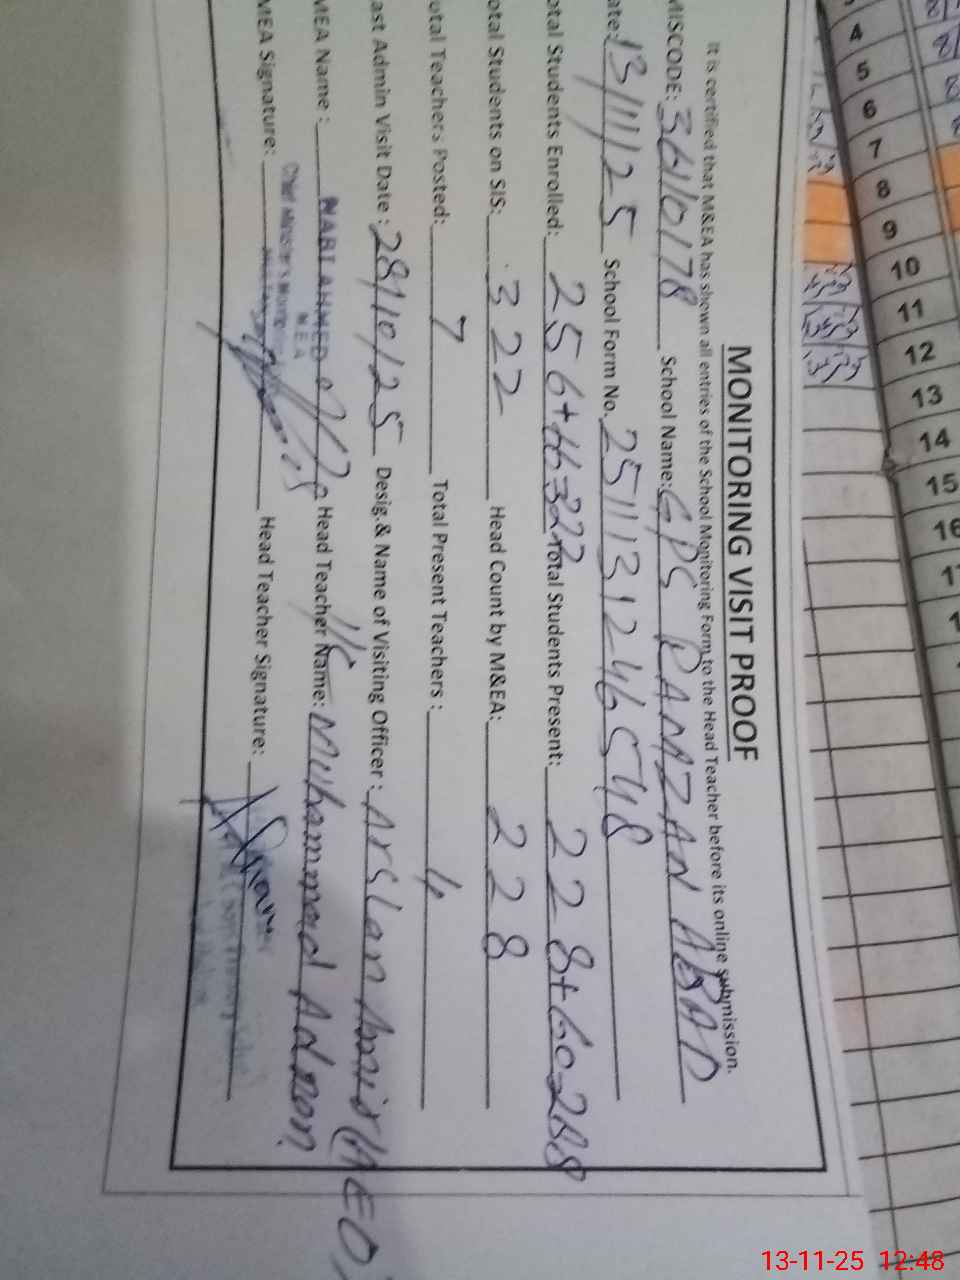 MONITORING VISIT PROOF
It is certified that M&EA has shown all entries of the School Monitoring Form to the Head Teacher before its online submission.
MISCODE: 36110178 School Name: GPS RAMZAN ABAD
ate: 13/11/25 School Form No. 2511131246548
otal Students Enrolled: 256+66=322 Total Students Present: 228+60=288
otal Students on SIS: 322 Head Count by M&EA: 228
otal Teachers Posted: 7 Total Present Teachers : 4
ast Admin Visit Date : 28/10/25 Desig.& Name of Visiting Officer : Arslan Amir (AEO)
MEA Name : NABI AHMED Head Teacher Name: Muhammad Adnan
MEA
Chief Minister's Monitoring
MEA Signature: Head Teacher Signature:
4
5
6
7
8
9
10
11
12
13
14
15
16
13-11-25 12:48